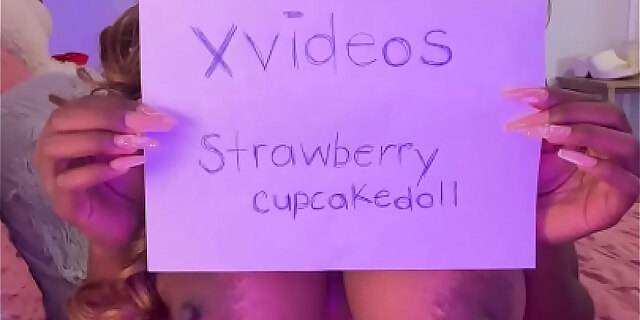 xvideos
Strawberry
cupcakedoll